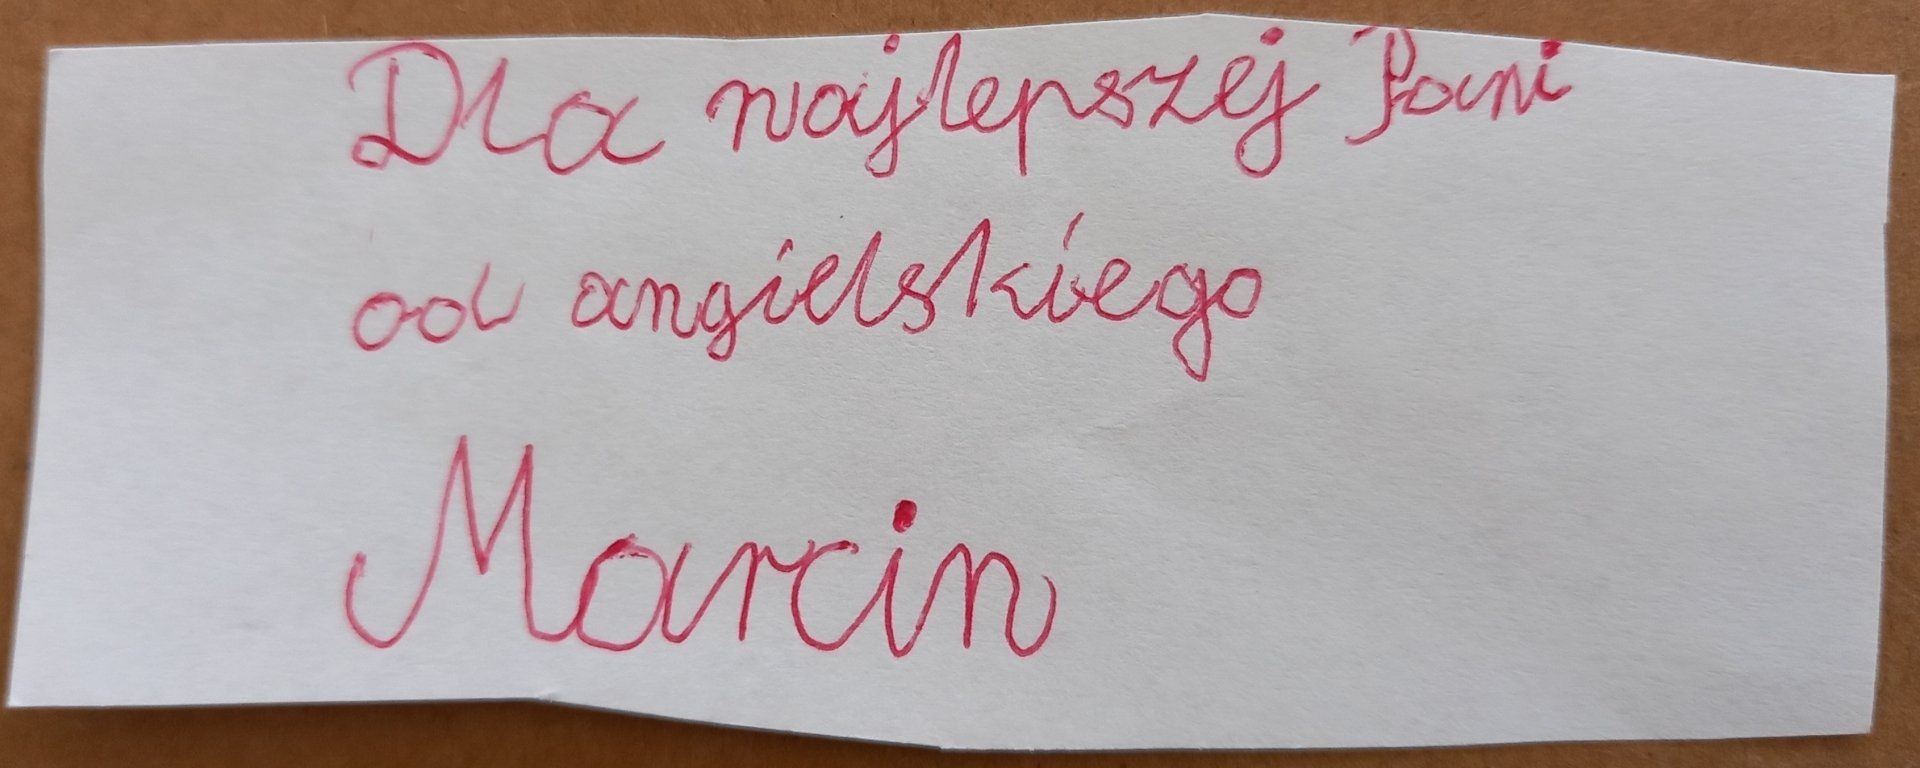 Dla najlepszej Pani
od angielskiego
Marcin